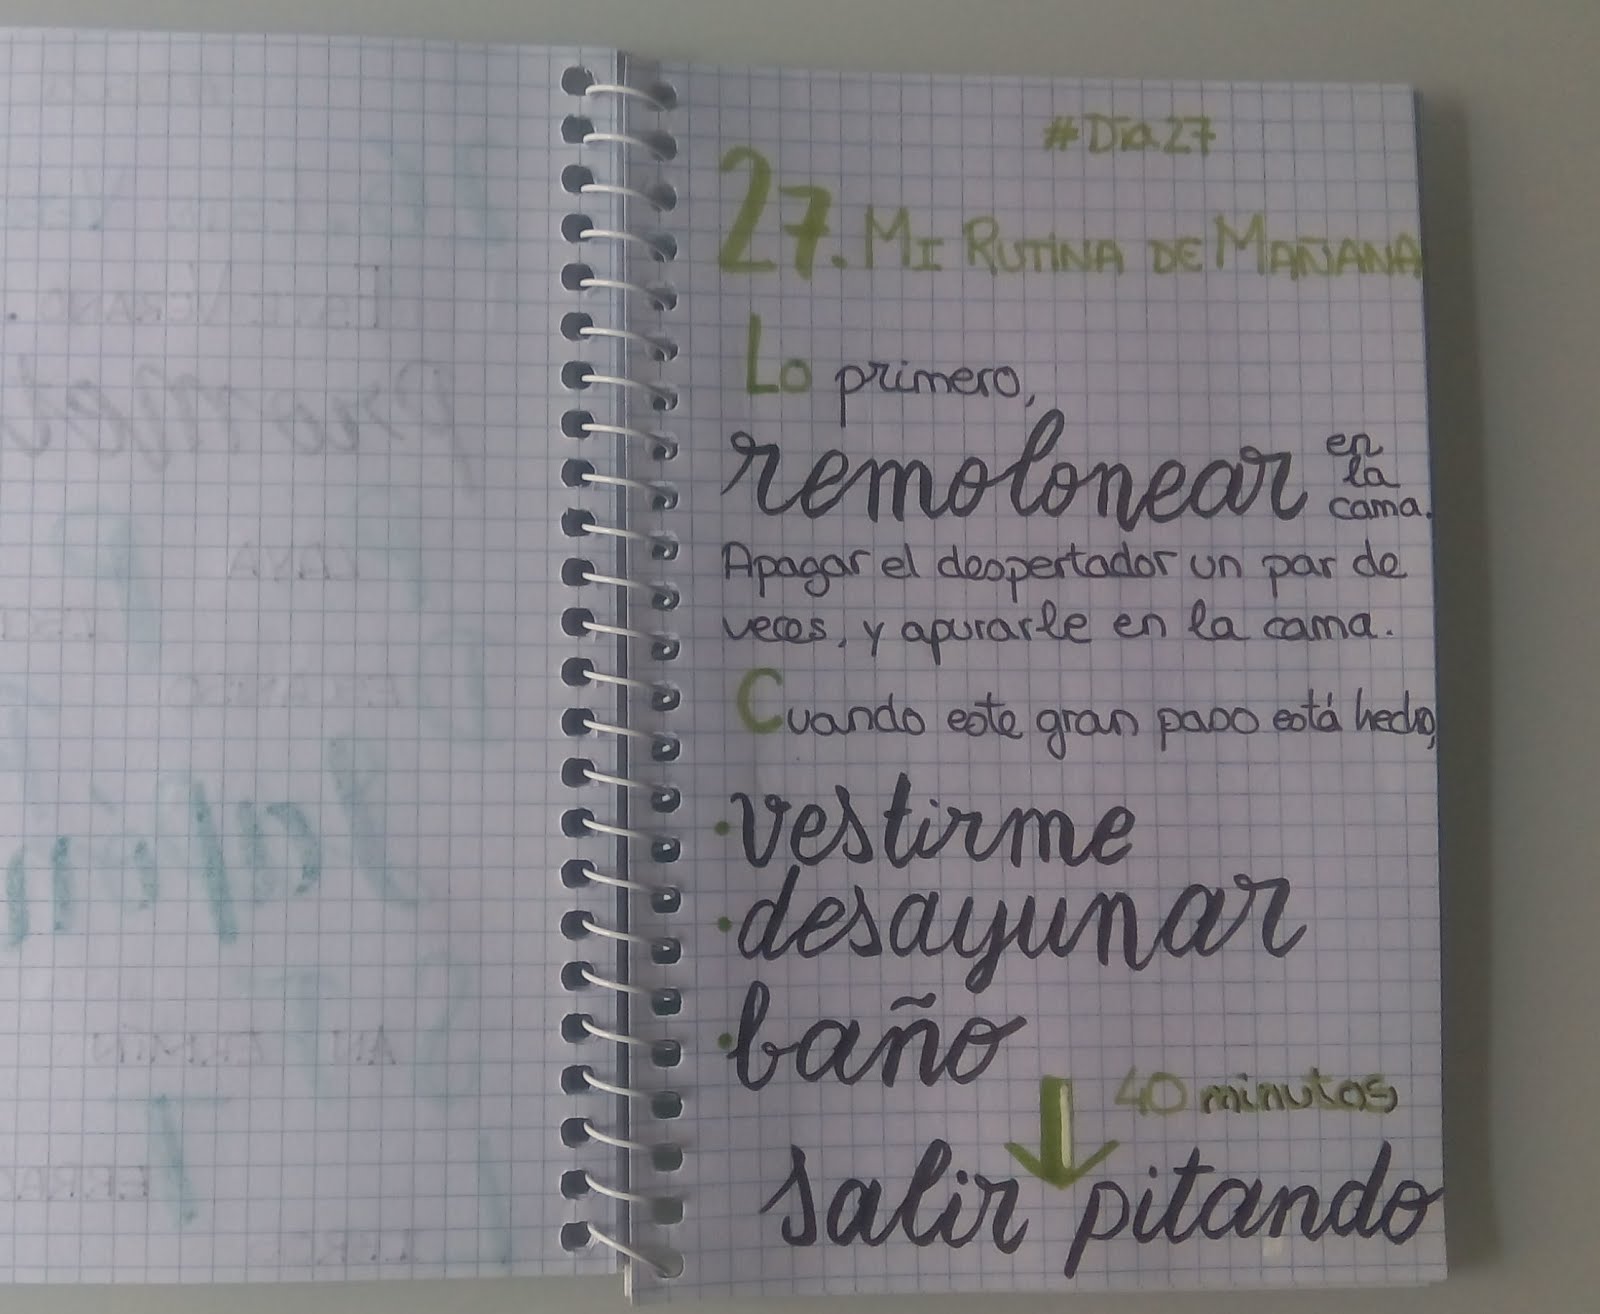 #Día27
27. MI RUTINA DE MAÑANA
Lo primero,
remolonear en la cama.
Apagar el despertador un par de
veces, y apurarle en la cama.
Cuando este gran paso está hecho,
·vestirme
·desayunar
·baño
40 minutos
salir pitando